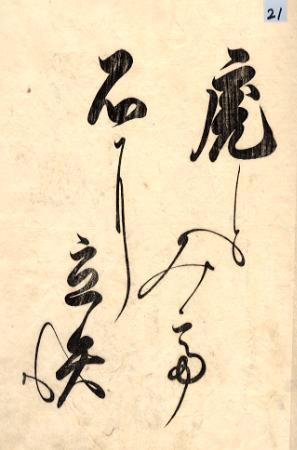 21
虎とみて
石に立矢の